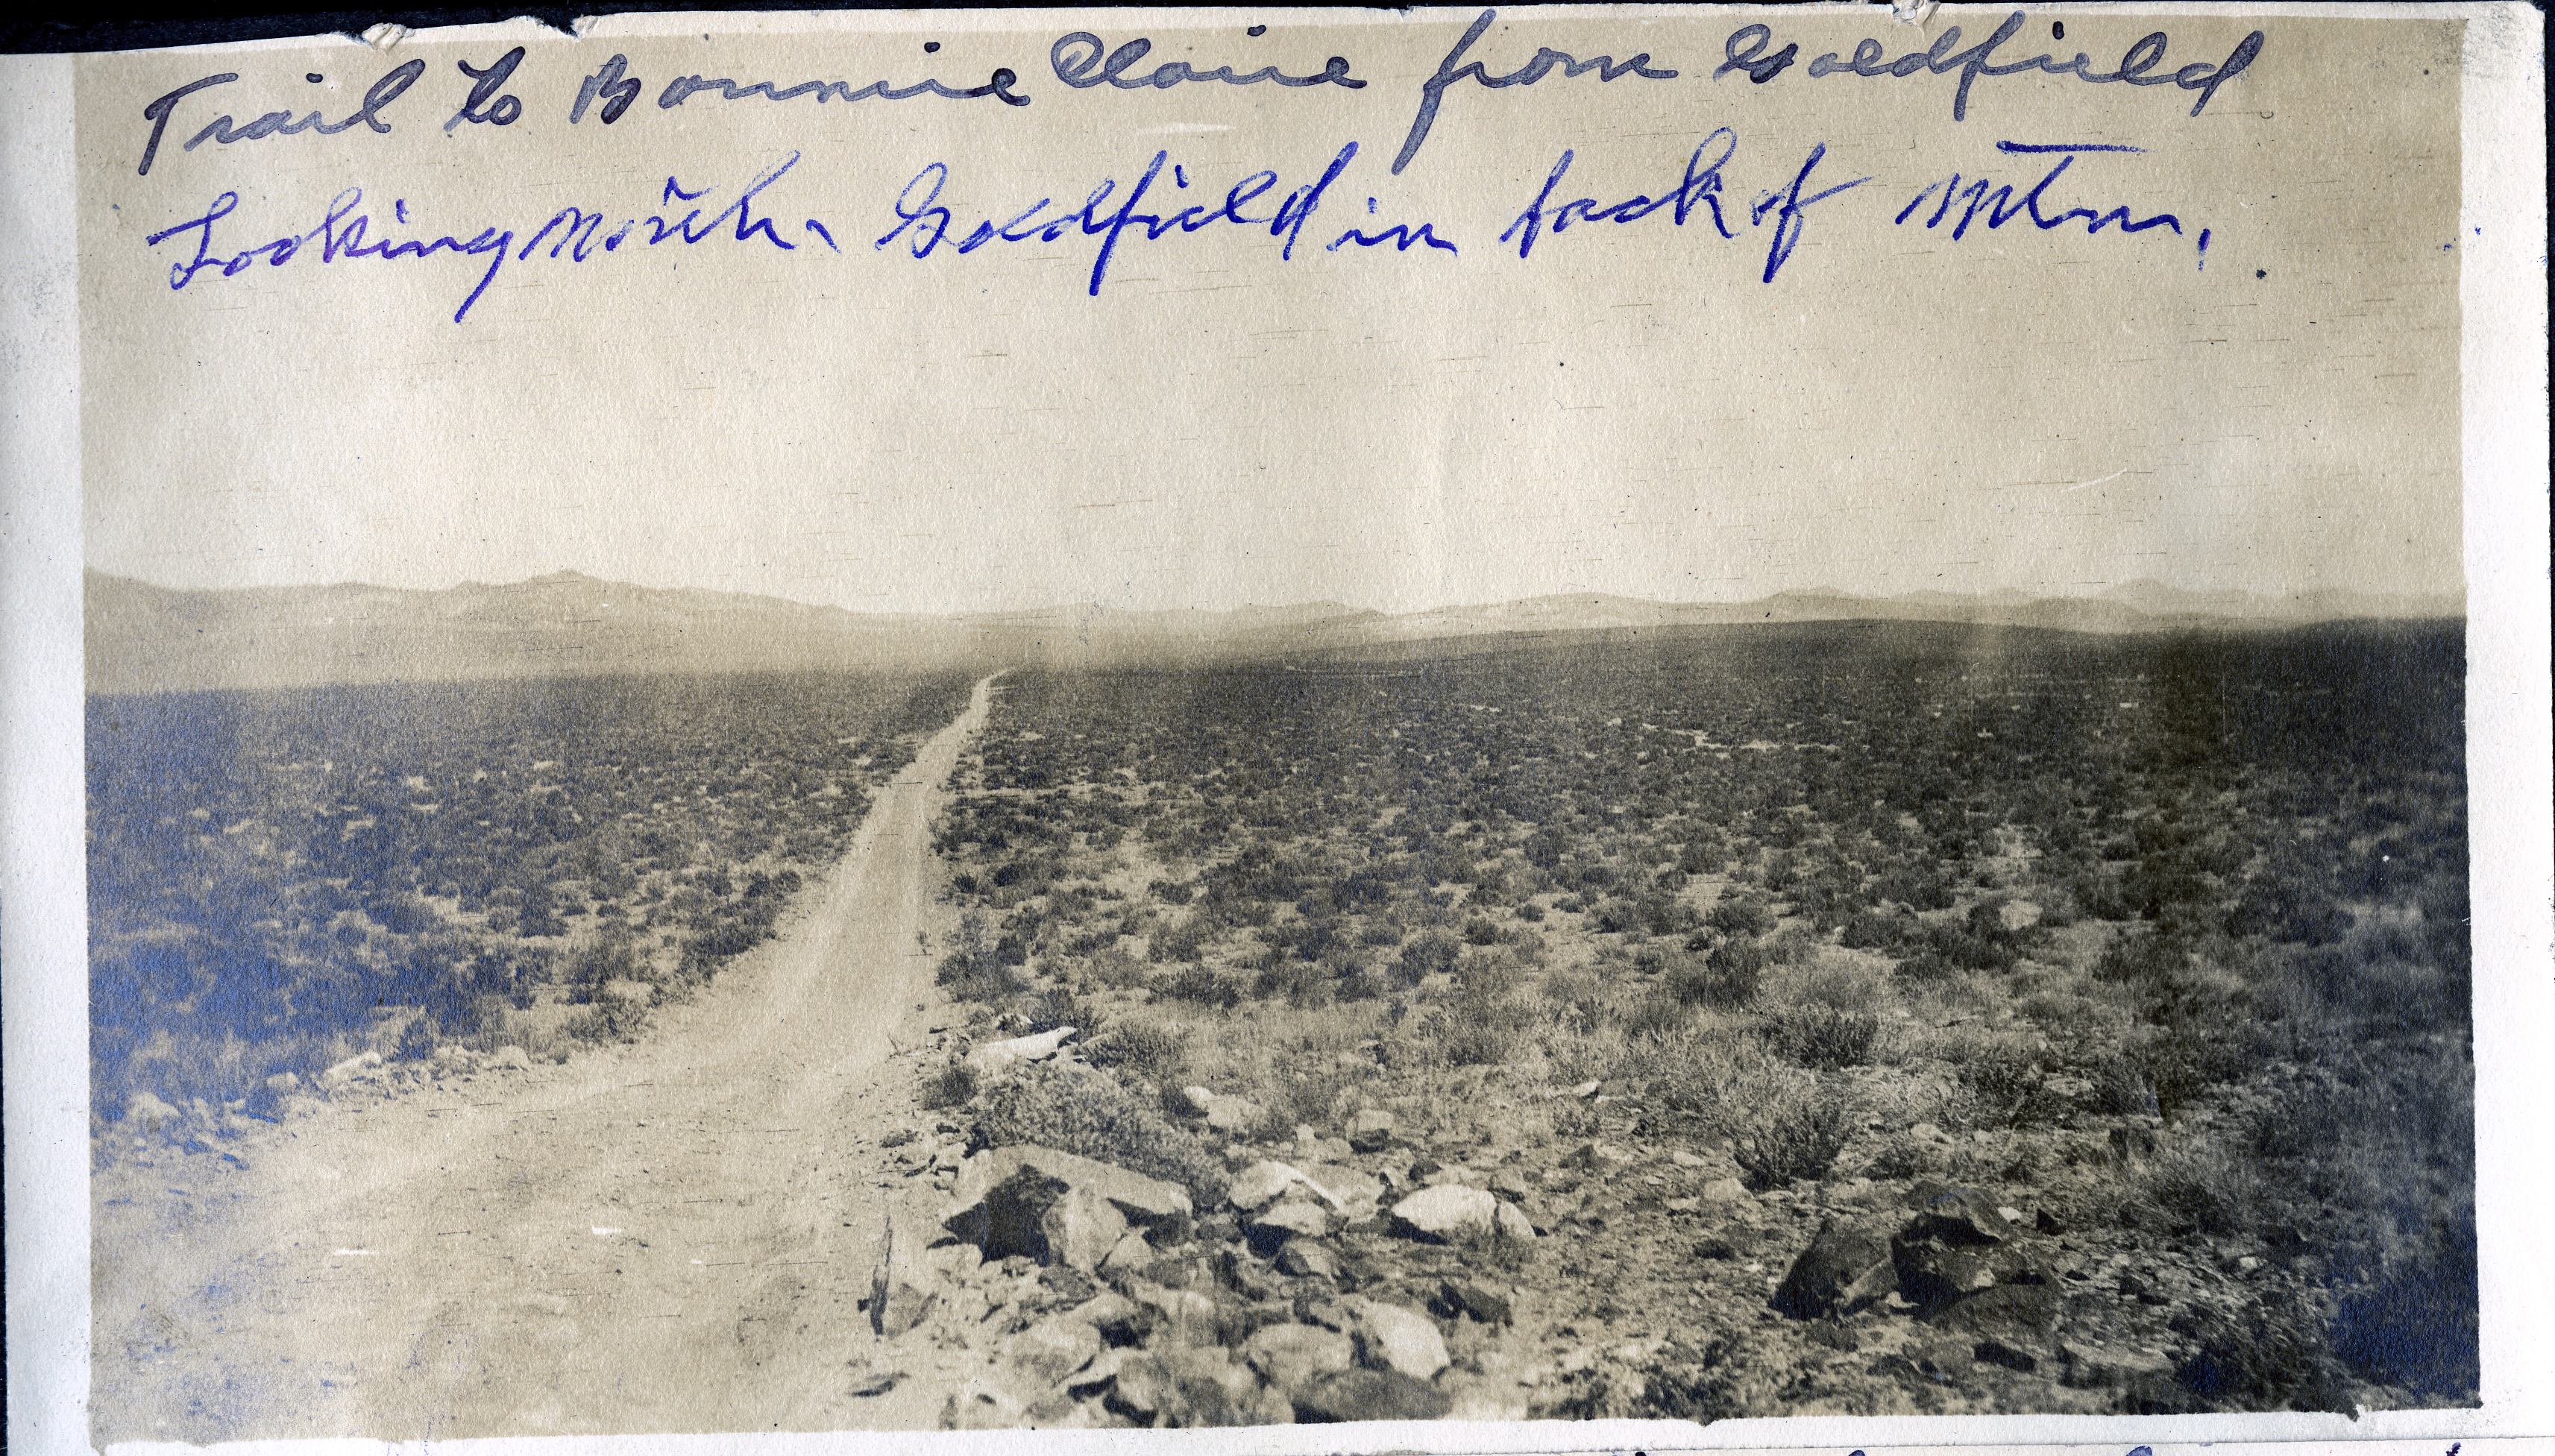 Trail to Bonnie Claire from Goldfield
Looking North. Goldfield in back of Mtn.